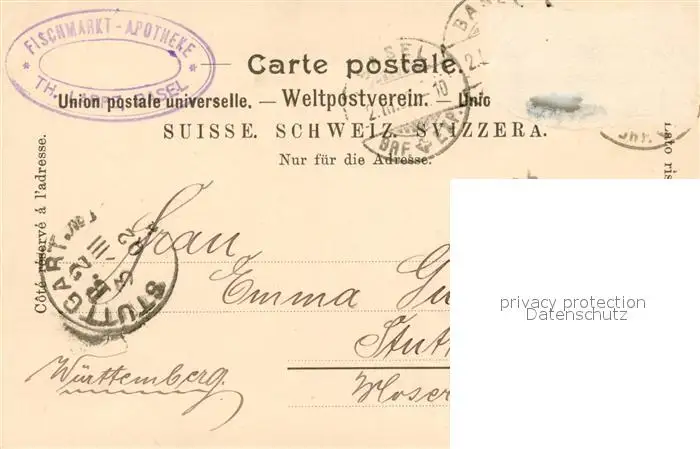 * FISCHMARKT - APOTHEKE *
TH. LAPPE, BASEL
BASEL
BASEL
Carte postale.
Union postale universelle. — Weltpostverein. — Unio
SUISSE. SCHWEIZ. SVIZZERA.
Nur für die Adresse.
BRF. & EXP.
Côté réservé à l'adresse.
Lato ris
STUTTGART
Frau
Emma Gu
Stutt
Württemberg.
Moser
privacy protection
Datenschutz